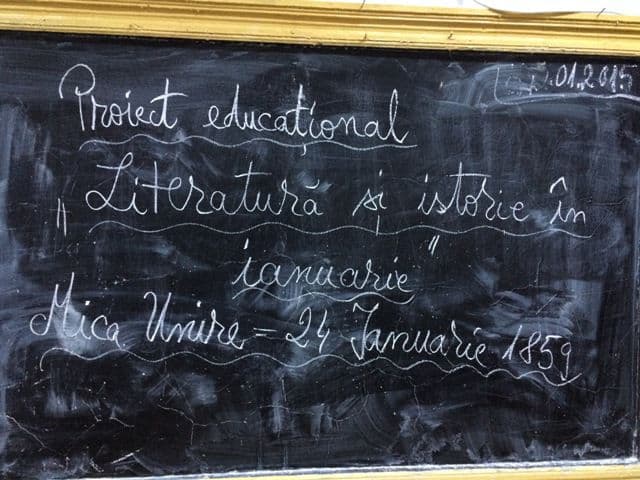 .01.2015
Proiect educațional
„Literatură și istorie în
ianuarie"
Mica Unire - 24 Ianuarie 1859